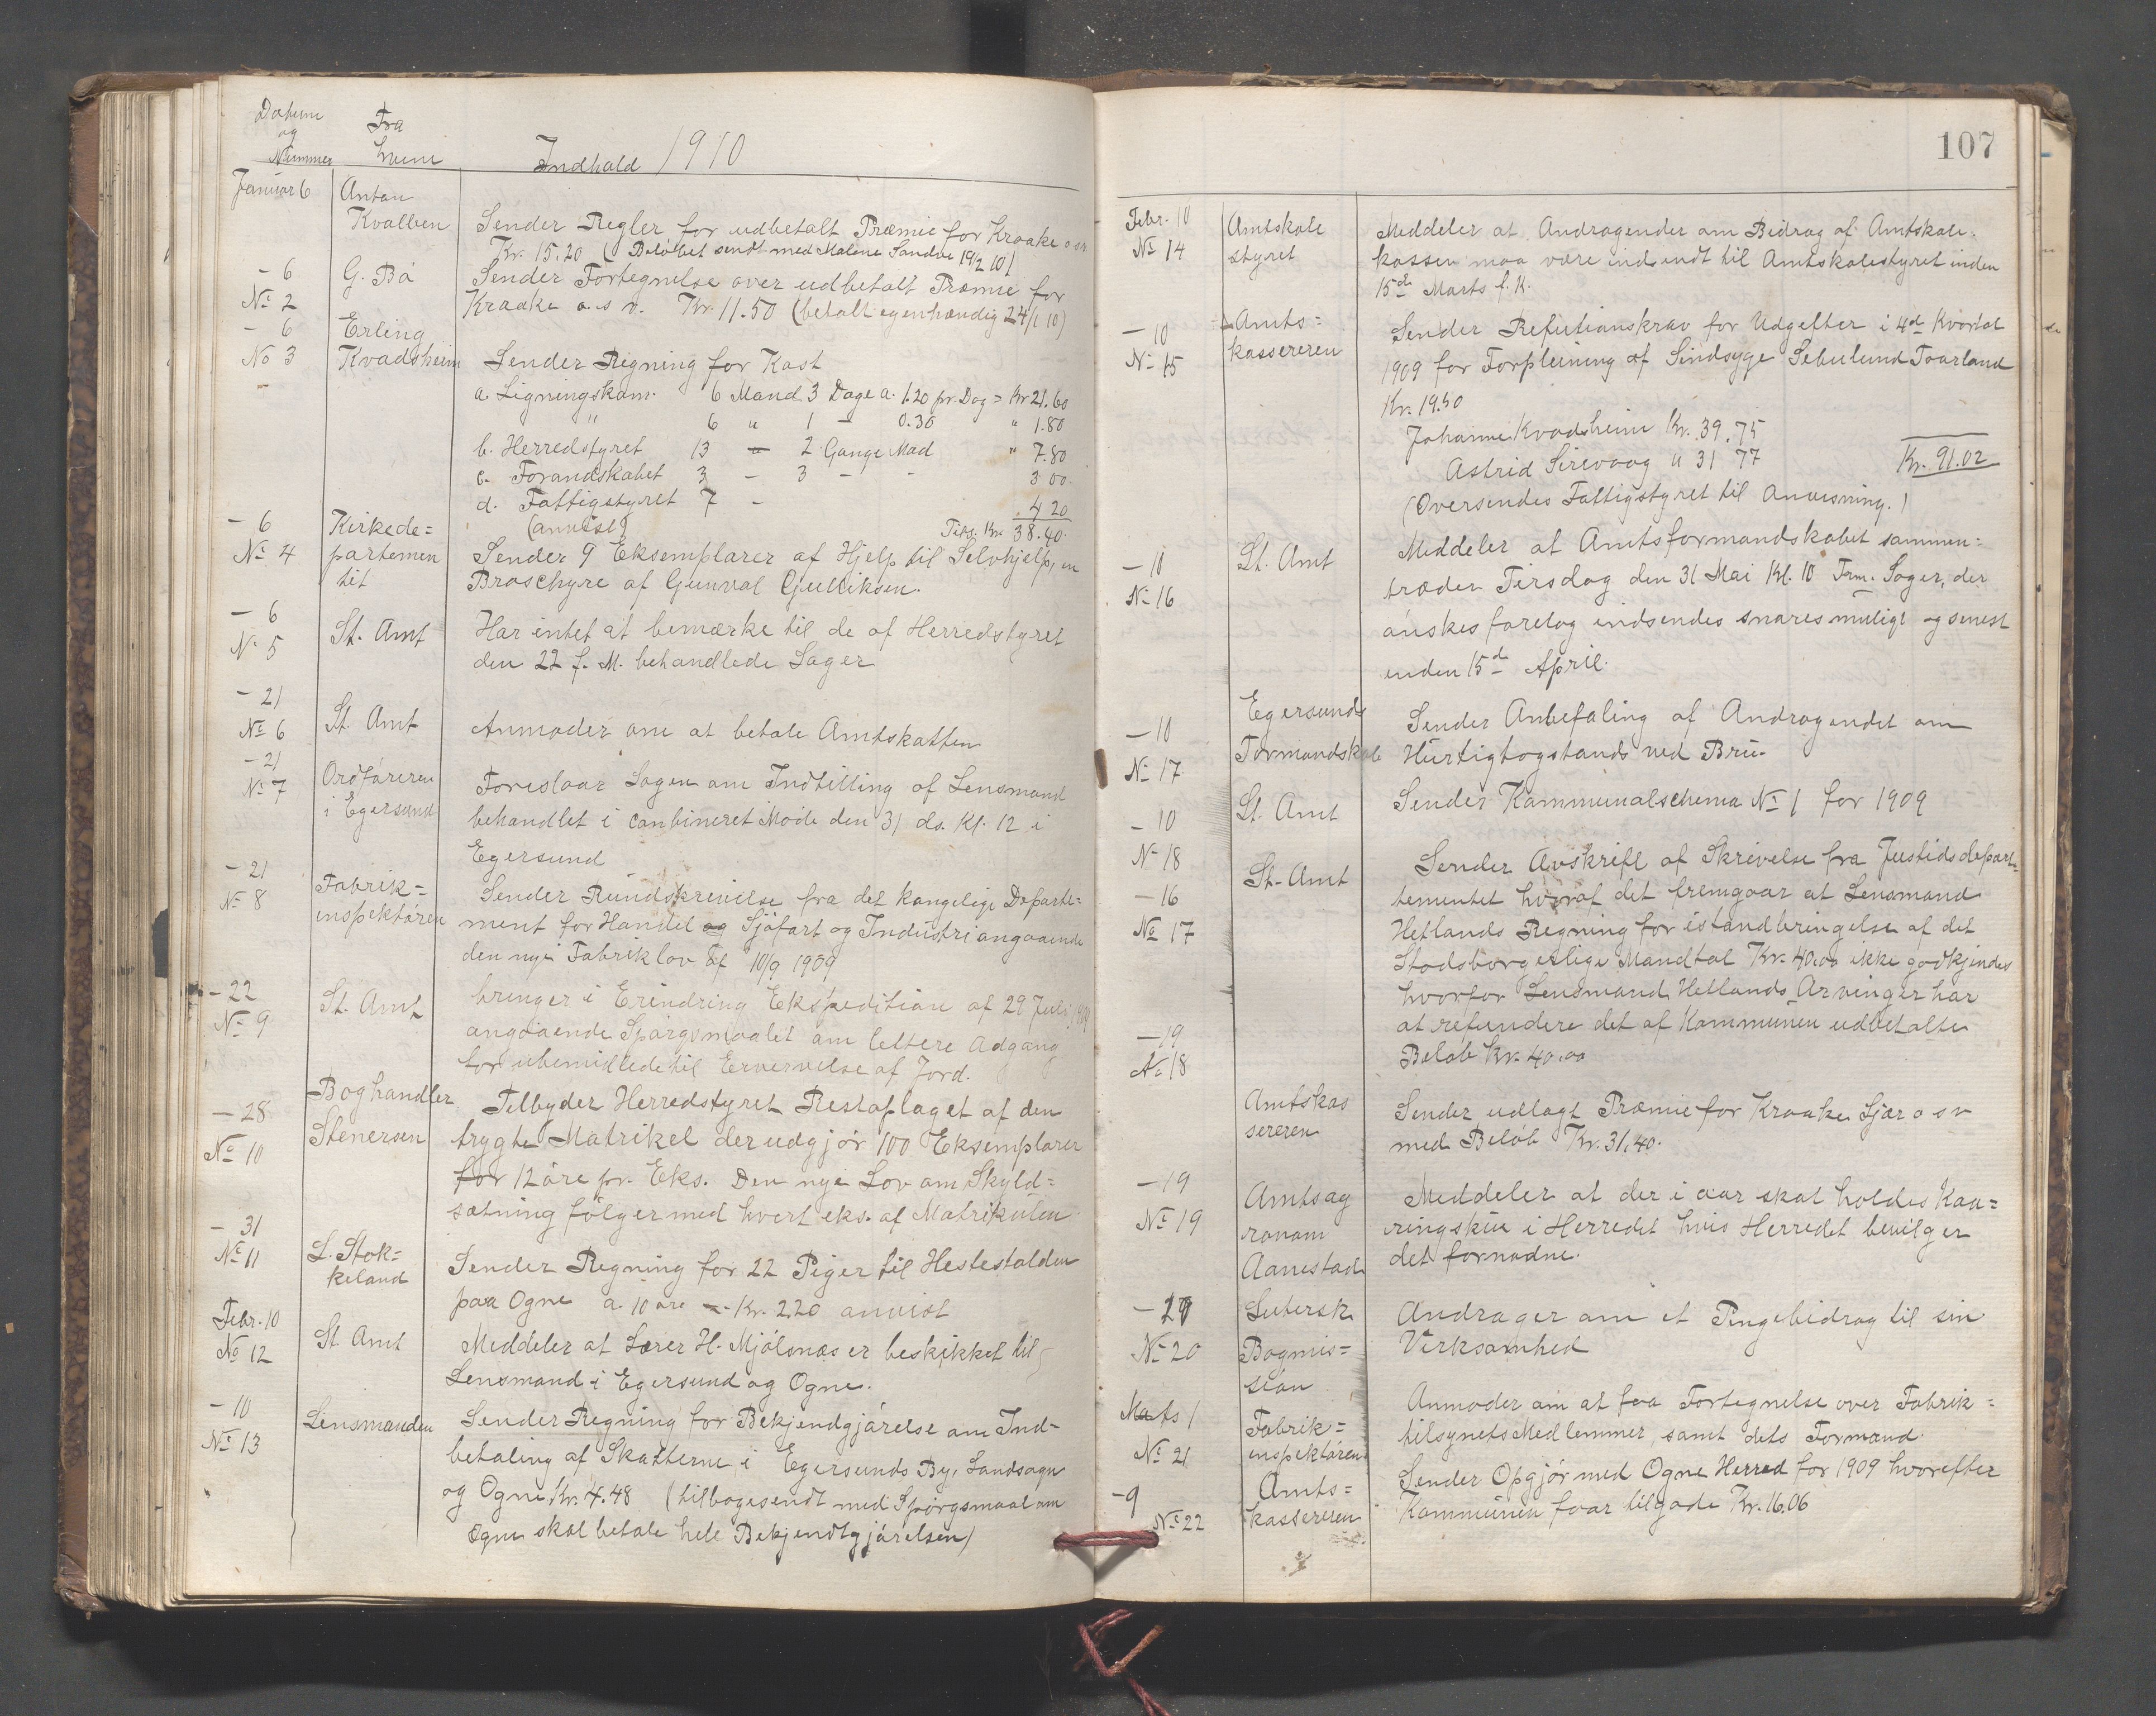 Datum
og
Nummer
Fra
hvem
Indhold 1910
Januar 6
Anton
Kvalben
Sender Regler for udbetalt Præmie for Kraake o sv
Kr. 15.20 (Beløbet sendt med Malene Sandve 19/2 10)
- 6
No 2
G. Bö
Sender Fortegnelse over udbetalt Præmie for
Kraake o. s v. Kr. 11.50 (betalt egenhændig 24/1 10)
- 6
No 3
Erling
Kvadsheim
Sender Regning for Kost
a. Ligningskom. 6 Mand 3 Dage a. 1.20 pr. Dag = Kr 21.60
" 6 " 1 - 0.30 " 1.80
b. Herredstyret 13 - 2 Gange Mad " 7.80
c. Formandskabet 3 - 3 - - 3 00
d. Fattigstyret 7 - 4 20
(anvist) Tils. Kr. 38.40
- 6
No 4
Kirkede=
partemen
tet
Sender 9 Eksemplarer af Hjelp til Selvhjelp, en
Broschyre af Gunval Gulliksen.
- 6
No 5
St. Amt
Har intet at bemærke til de af Herredstyret
den 22 f. M. behandlede Sager
- 21
No 6
St. Amt
Anmoder om at betale Amtskatten
- 21
No 7
Ordføreren
i Egersund
Foreslaar Sagen om Indstilling af Lensmand
behandlet i combineret Møde den 31 ds. Kl. 12 i
Egersund
- 21
No 8
Fabrik=
inspektøren
Sender Rundskrivelse fra det kongelige Departe=
ment for Handel og Sjøfart og Industri angaaende
den nye Fabriklov af 10/9 1909
- 22
No 9
St. Amt
bringer i Erindring Ekspedition af 29 Juli 1909
angaaende Spørgsmaalet om lettere Adgang
for ubemidlede til Erhvervelse af Jord.
- 28
No 10
Boghandler
Stenersen
Tilbyder Herredstyret Restoplaget af den
trygte Matrikel der udgjør 100 Eksemplarer
for 12 øre pr. Eks. Den nye Lov om Skyld=
sætning følger med hvert eks. af Matrikulen
- 31
No 11
L. Stok=
keland
Sender Regning for 22 Piger til Hestestalden
paa Ogne a. 10 øre - Kr. 2.20 anvist
Febr. 10
No 12
St. Amt
Meddeler at Lærer H. Mjølsnæs er beskikket til
Lensmand i Egersund og Ogne.
- 10
No 13
Lensmanden
Sender Regning for Bekjendgjørelse om Ind-
betaling af Skatterne i Egersunds By, Landsogn
og Ogne Kr. 4.48 (tilbagesendt med Spørgsmaal om
Ogne skal betale hele Bekjendtgjørelsen)
107
Febr. 10
No 14
Amtskole
styret
Meddeler at Andragender om Bidrag af Amtskole=
kassen maa være indsendt til Amtskolestyret inden
15de Marts f. K.
- 10
No 15
Amts=
kassereren
Sender Refutionskrav for Udgifter i 4de Kvartal
1909 for Forpleining af Sindsyge Sebulund Toarland
Kr. 19.50
Johanne Kvadsheim Kr. 39.75
Astrid Sirevaag " 31 77 Kr. 91.02
(Oversendes Fattigstyret til Anvisning.)
- 10
No 16
St. Amt
Meddeler at Amtsformandskabet sammen=
træder Tirsdag den 31 Mai Kl. 10 Fm. Sager, der
ønskes foretag indsendes snares muligt og senest
inden 15de April.
- 10
No 17
Egersunds
Formandskab
Sender Anbefaling af Andragendet om
Hurtigtogstands ved Bru.
- 10
No 18
St. Amt
Sender Kommunalschema No 1 for 1909
- 16
No 17
St. Amt
Sender Avskrift af Skrivelse fra Justidsdepart=
tementet hvoraf det fremgaar at Lensmand
Hetlands Regning for istandbringelse af det
Stadsborgerlige Mandtal Kr. 40.00 ikke godkjendes
hvorfor Lensmand Hetlands Arvinger har
at refundere det af Kommunen udbetalte
Beløb Kr. 40.00
- 19
No 18
Amtskas
sereren
Sender udlagt Præmie for Kraake Sjær o s v
med Beløb Kr. 31.40.
- 19
No 19
Amtsag
ronom
Aanestad
Meddeler at der i aar skal holdes Kaa=
ringskue i Herredet hvis Herredet bevilger
det fornødne.
- 21
No 20
Lutersk
Bogmis=
sion
Andrager om et Pengebidrag til sin
Virksomhed
Mats 1
No 21
Fabrik=
inspektøren
Anmoder om at faa Fortegnelse over Fabrik=
tilsynets Medlemmer, samt dets Formand.
- 9
No 22
Amts=
kassereren
Sender Opgjør med Ogne Herred for 1909 hvorefter
Kommunen faar tilgode Kr. 16.06